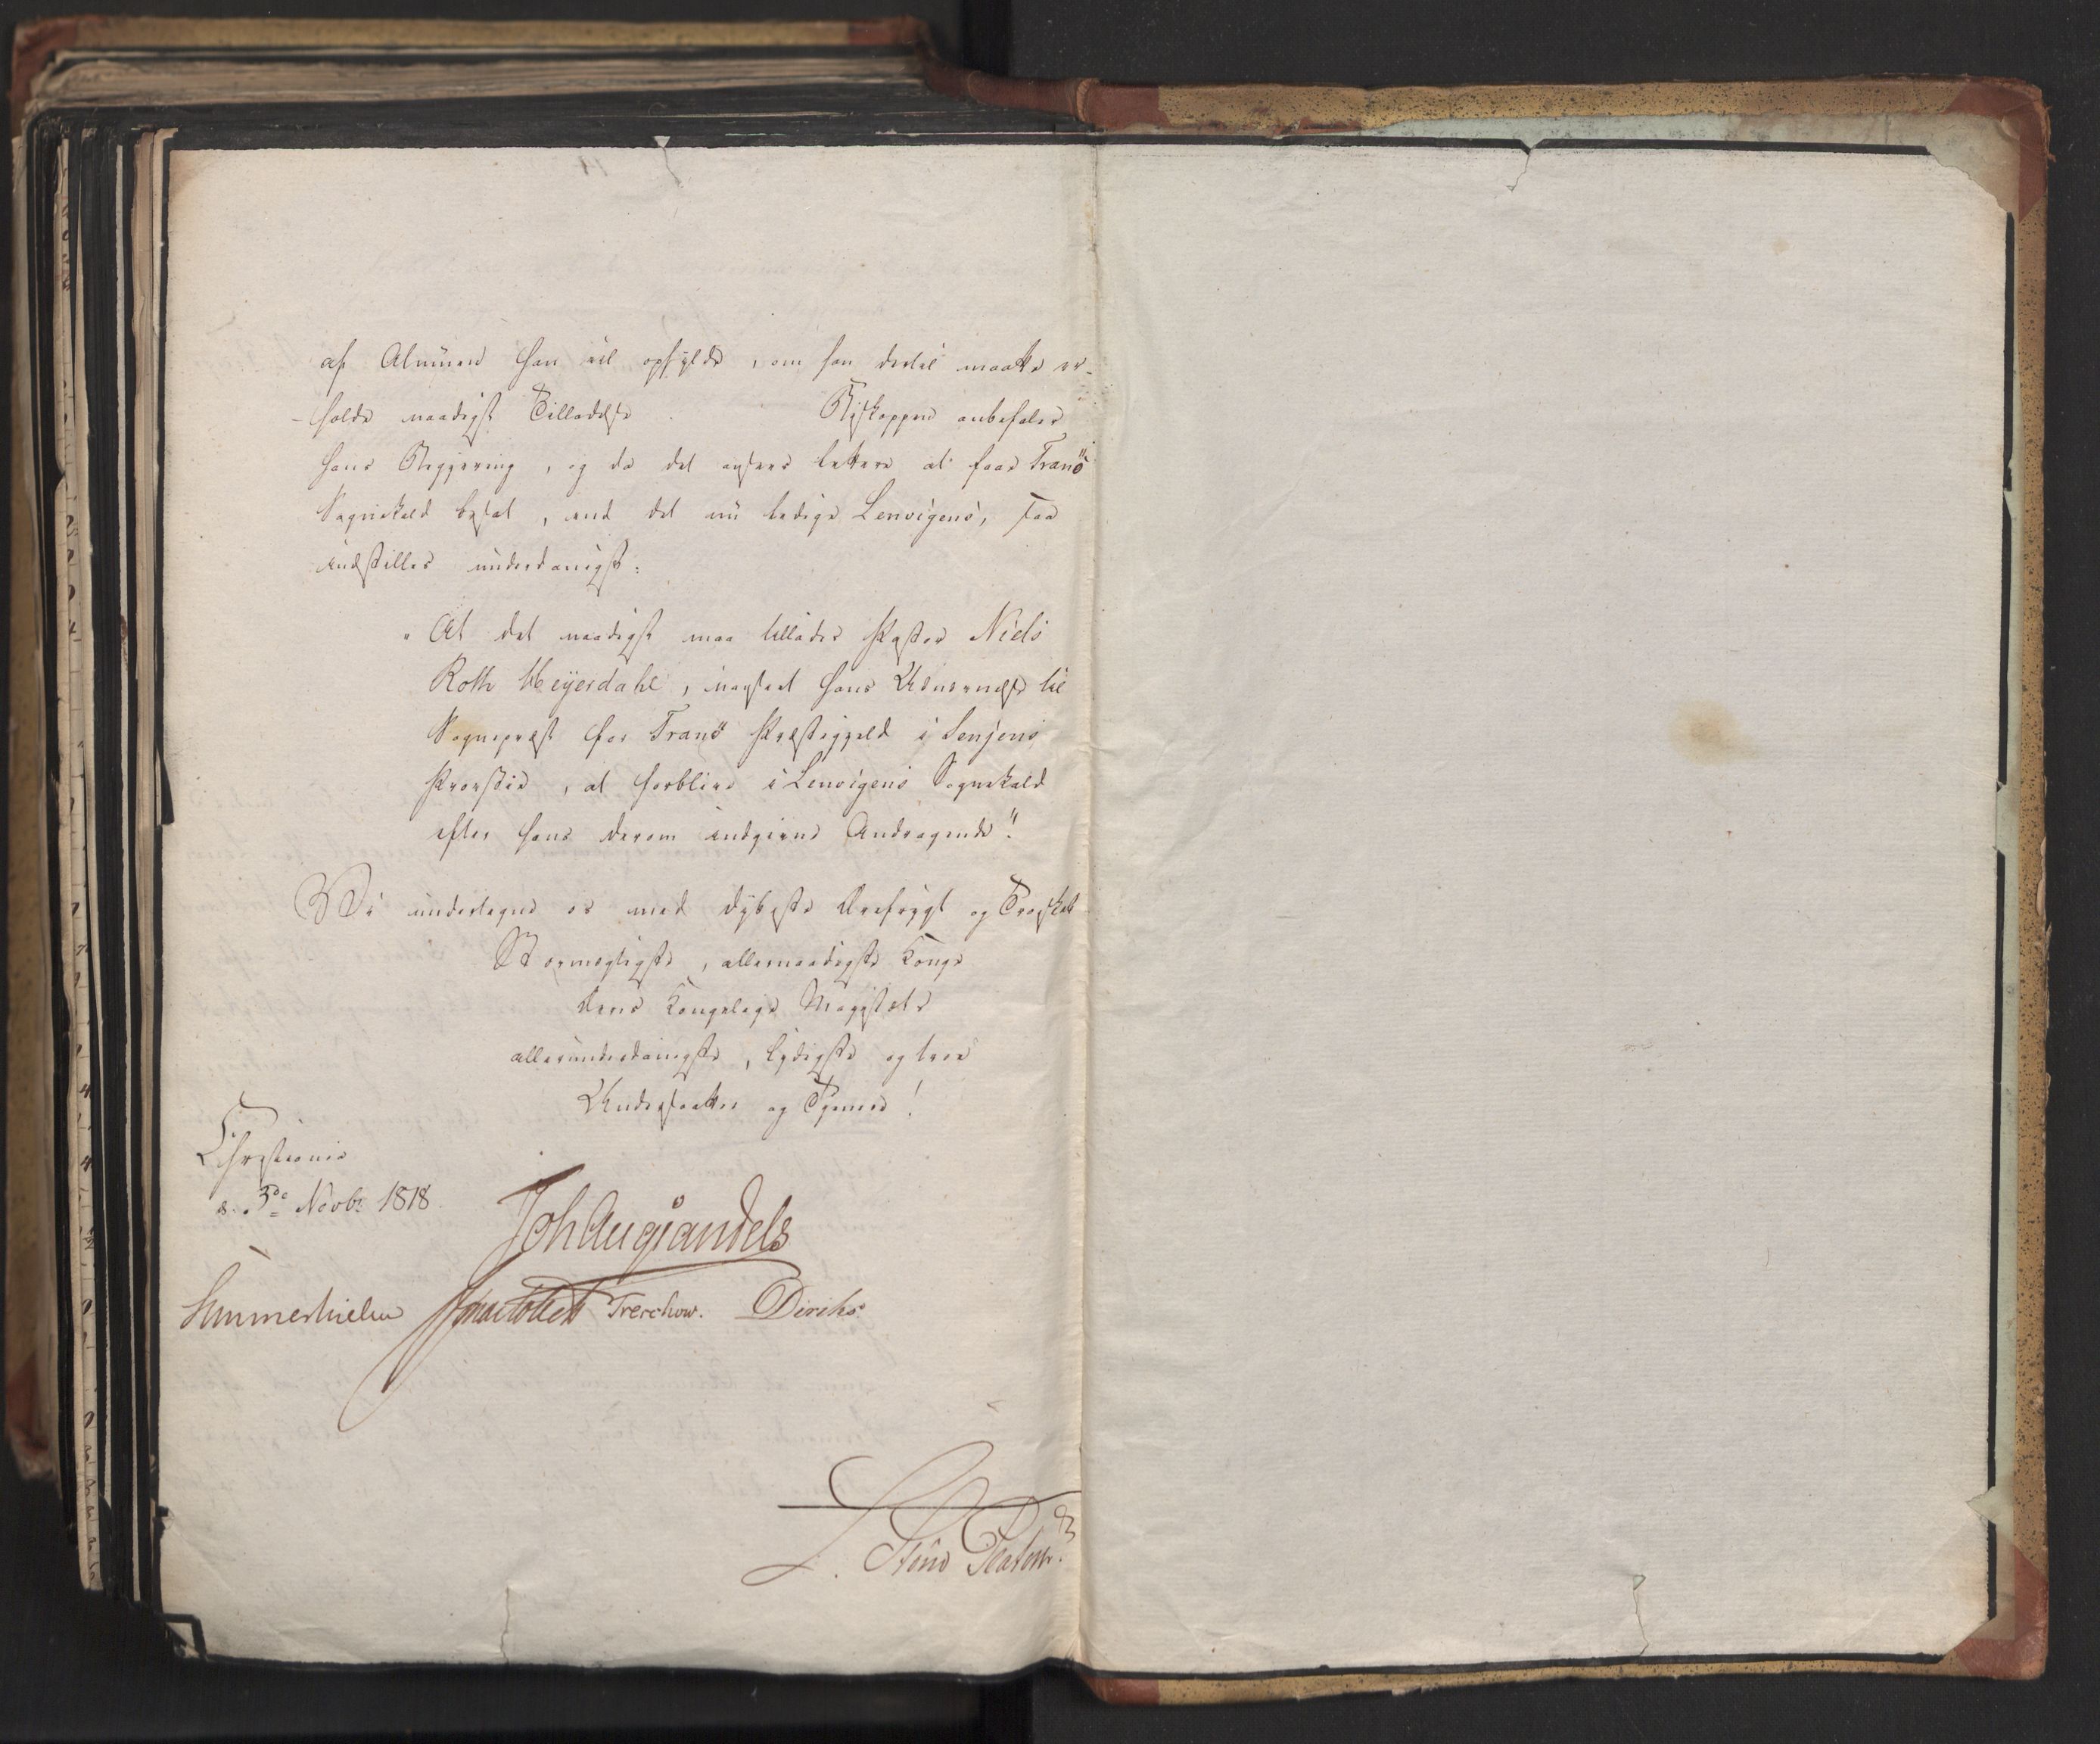 af Almuen han vil opfylde, om han dertil maatte er-
-holde naadigst Tilladelse. Biskoppen anbefaler
hans Begjering, og da det ansees lettere at faae Tranö
Sognekald besat, end det nu ledige Lenvigens, saa
indstilles underdanigst:
"At det naadigst maa tillades Præsten Niels
Roth Heyerdahl, uagtet hans Udnævnelse til
Sognepræst for Tranö Præstegjeld i Senjens
Provstie, at forblive i Lenvigens Sognekald
efter hans derom indgivne Andragende".
Vi undertegne os med dybeste Ærefrygt og Troskab
Stormægtigste, allernaadigste Konge
Deres Kongelige Majestæts
allerunderdanigste, lydigste og troe
Undersaatter og Tjenere!
Christiania
d. 3de Novbr 1818.
Joh Aug Sandels
Sommerhielm Jonas Collett Treschow. Diriks.
L. Stoud Platou